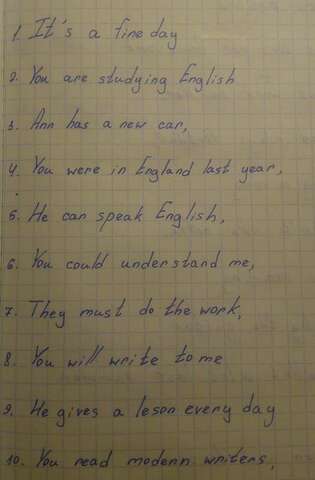 1. It's a fine day
2. You are studying English
3. Ann has a new car,
4. You were in England last year,
5. He can speak English,
6. You could understand me,
7. They must do the work,
8. You will write to me
9. He gives a leson every day
10. You read modern writers,